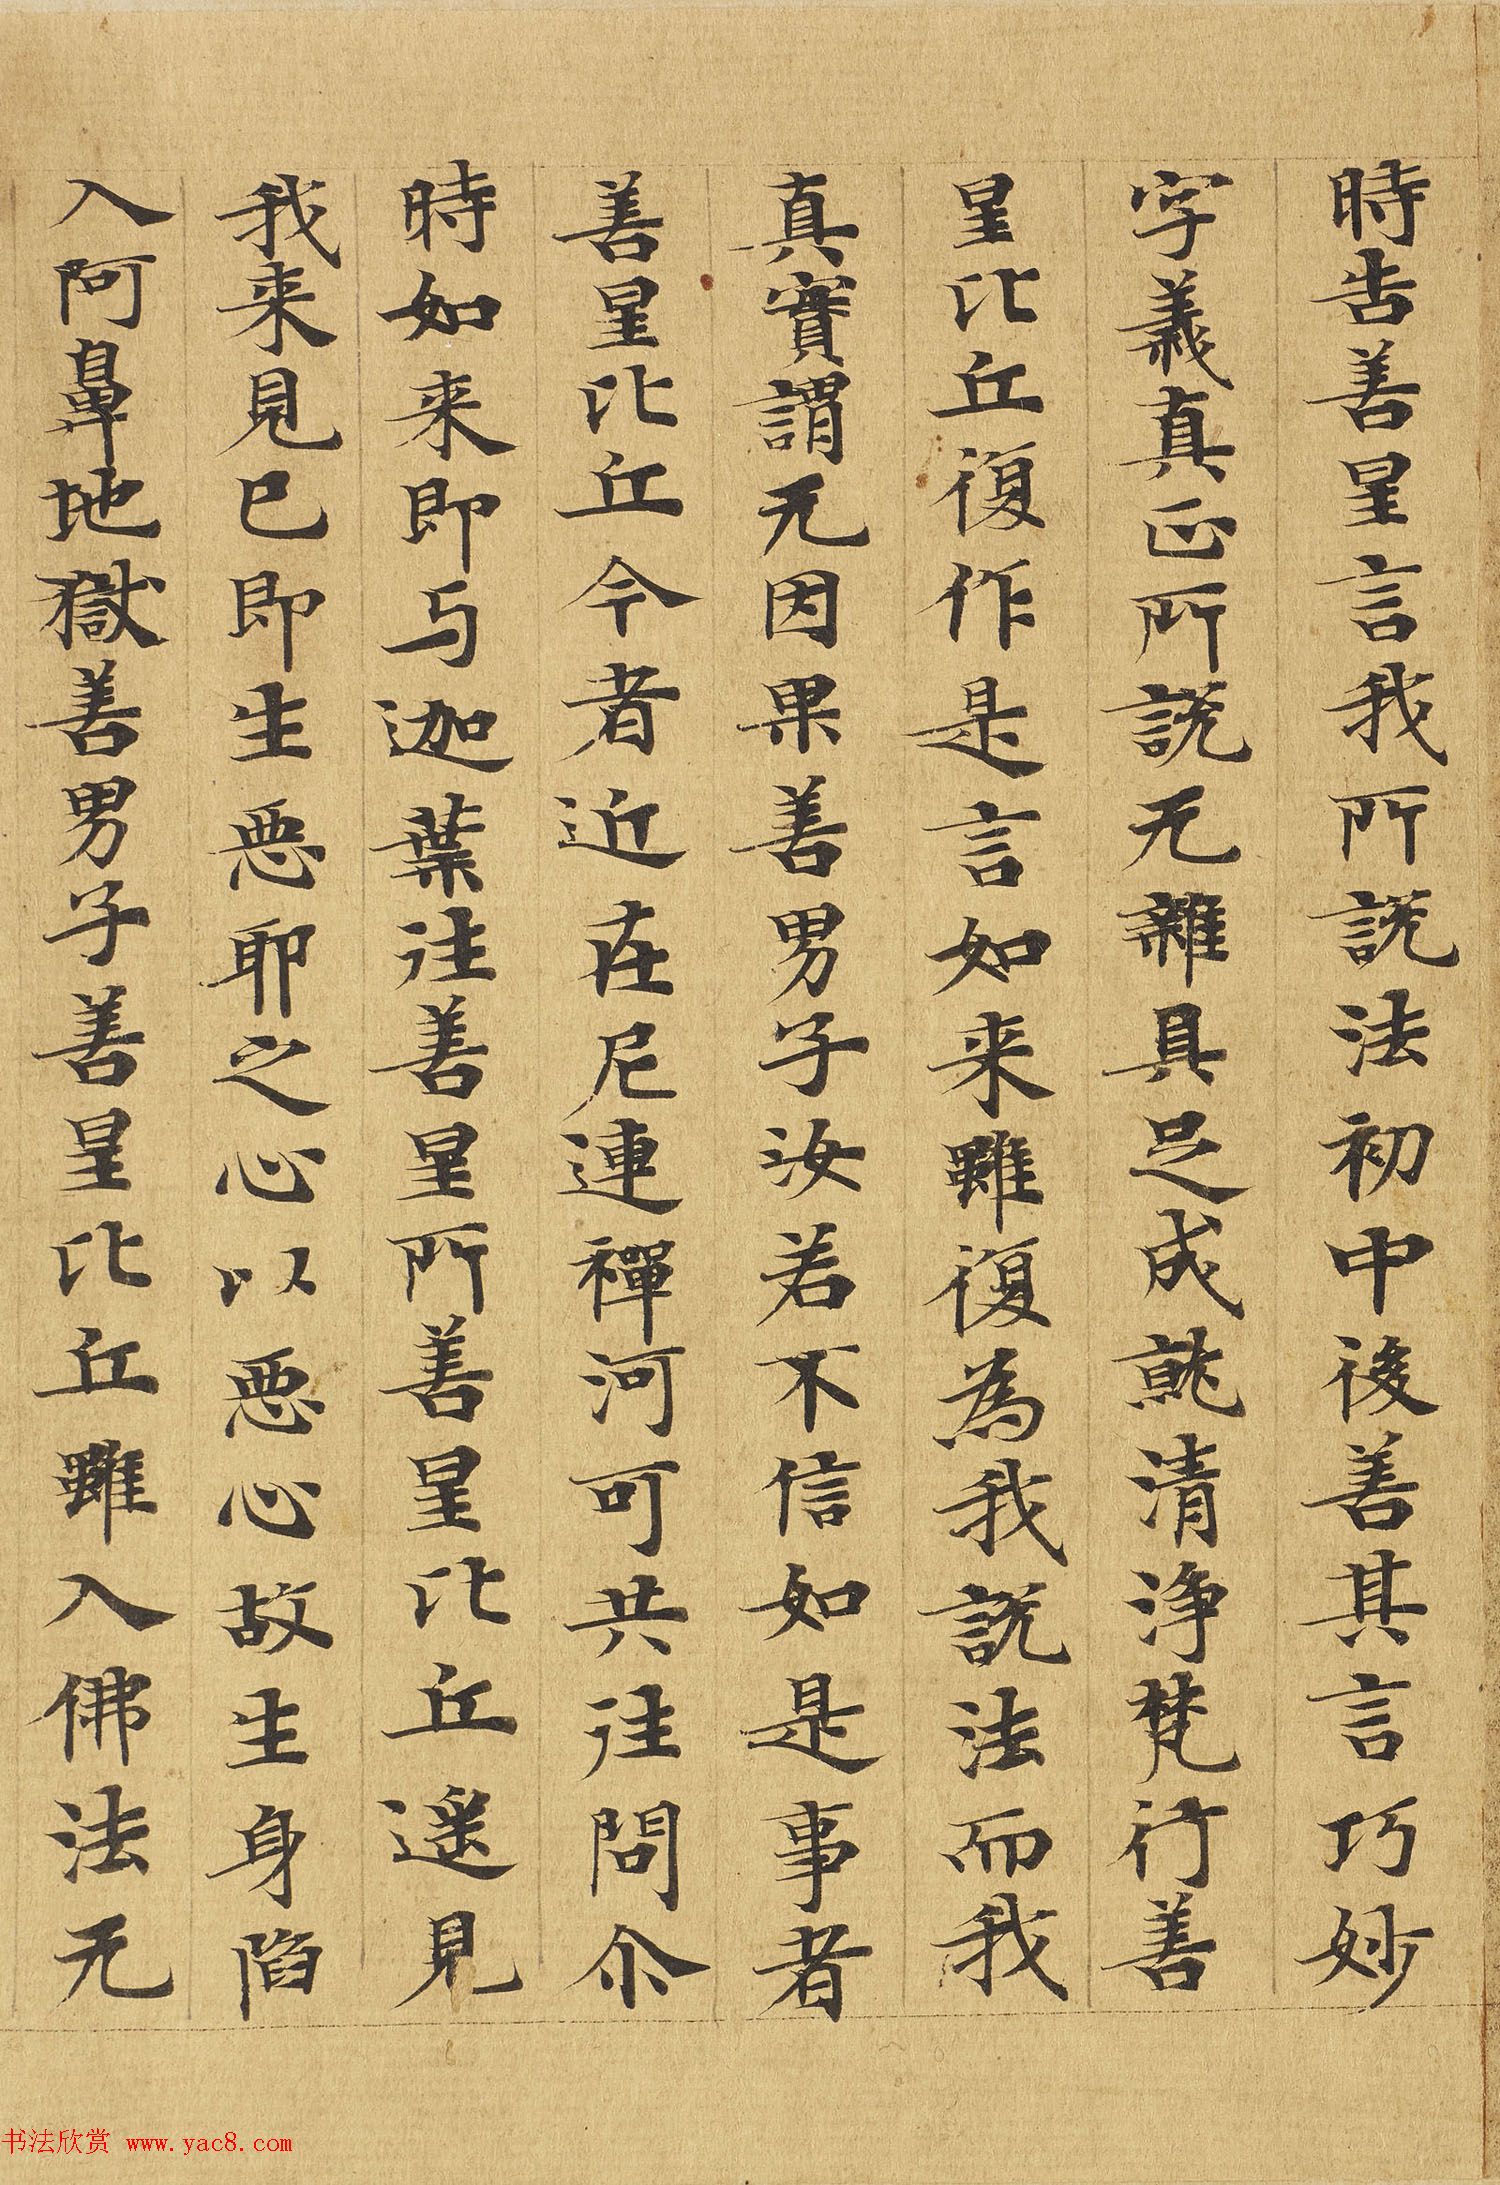 時告善星言我所說法初中後善其言巧妙
字義真正所說无雜具足成就清淨梵行善
星比丘復作是言如来雖復為我說法而我
真實謂无因果善男子汝若不信如是事者
善星比丘今者近在尼連禪河可共往問尒
時如来即与迦葉往善星所善星比丘遥見
我来見已即生惡耶之心以惡心故生身陷
入阿鼻地獄善男子善星比丘雖入佛法无
书法欣赏 www.yac8.com